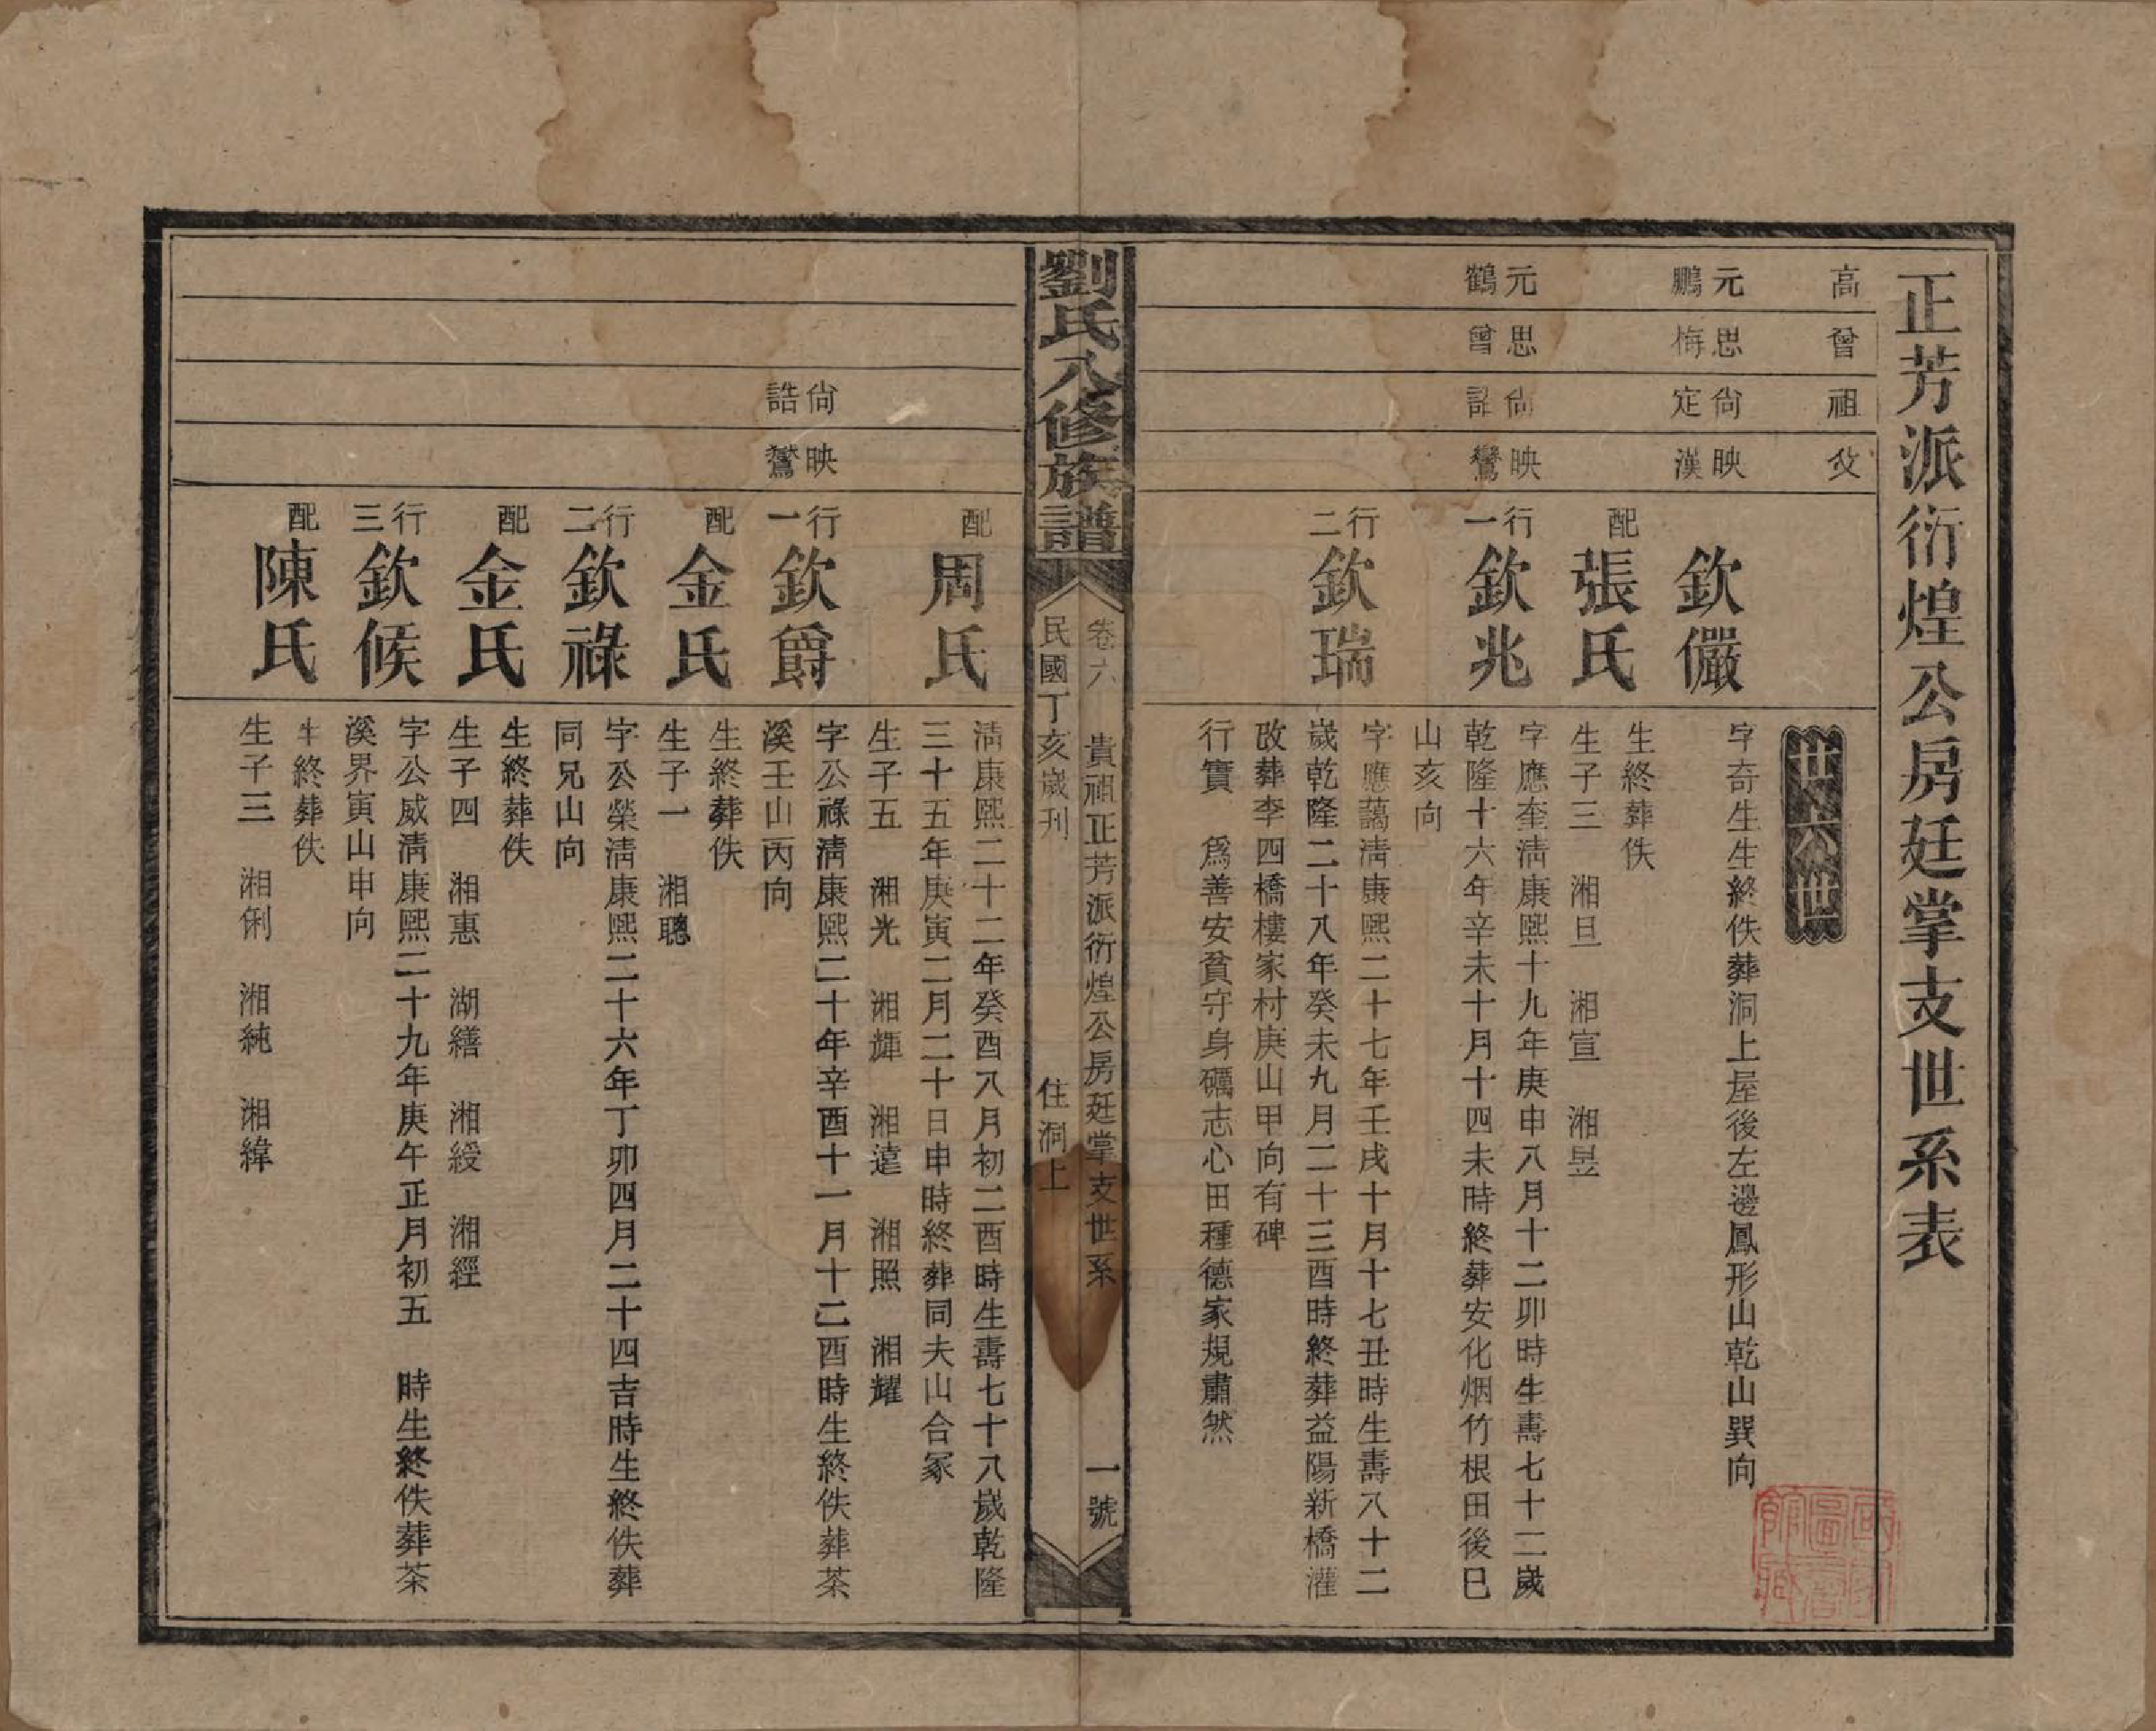 正芳派衍煌公房廷掌支世系表
高 曾 祖 父
廿六世
元鵬 思梅 尙定 映漢
欽儼
字奇生生終佚葬洞上屋後左邊鳳形山乾山巽向
配張氏
生終葬佚
生子三 湘旦 湘宣 湘昱
元鶴 思曾 尙詔 映鸞
行一欽兆
字應奎淸康熙十九年庚申八月十二卯時生壽七十二歲
乾隆十六年辛未十月十四未時終葬安化烟竹根田後巳
山亥向
行二欽瑞
字應藹淸康熙二十七年壬戌十月十七丑時生壽八十二
歲乾隆二十八年癸未九月二十三酉時終葬益陽新橋灌
改葬李四橋樓家村庚山甲向有碑
行實 爲善安貧守身礪志心田種德家規肅然
劉氏八修族譜
卷六 貴祖正芳派衍煌公房廷掌支世系 一號
民國丁亥歲刊 住洞上
配周氏
淸康熙二十二年癸酉八月初二酉時生壽七十八歲乾隆
三十五年庚寅二月二十日申時終葬同夫山合冢
生子五 湘光 湘輝 湘遠 湘照 湘耀
尙誥 映鴛
行一欽爵
字公祿淸康熙二十年辛酉十一月十二酉時生終佚葬茶
溪壬山丙向
配金氏
生終葬佚
生子一 湘聰
行二欽祿
字公榮淸康熙二十六年丁卯四月二十四吉時生終佚葬
同兄山向
配金氏
生終葬佚
生子四 湘惠 湖繕 湘綬 湘經
行三欽候
字公威淸康熙二十九年庚午正月初五 時生終佚葬茶
溪界寅山申向
配陳氏
生終葬佚
生子三 湘俐 湘純 湘緯